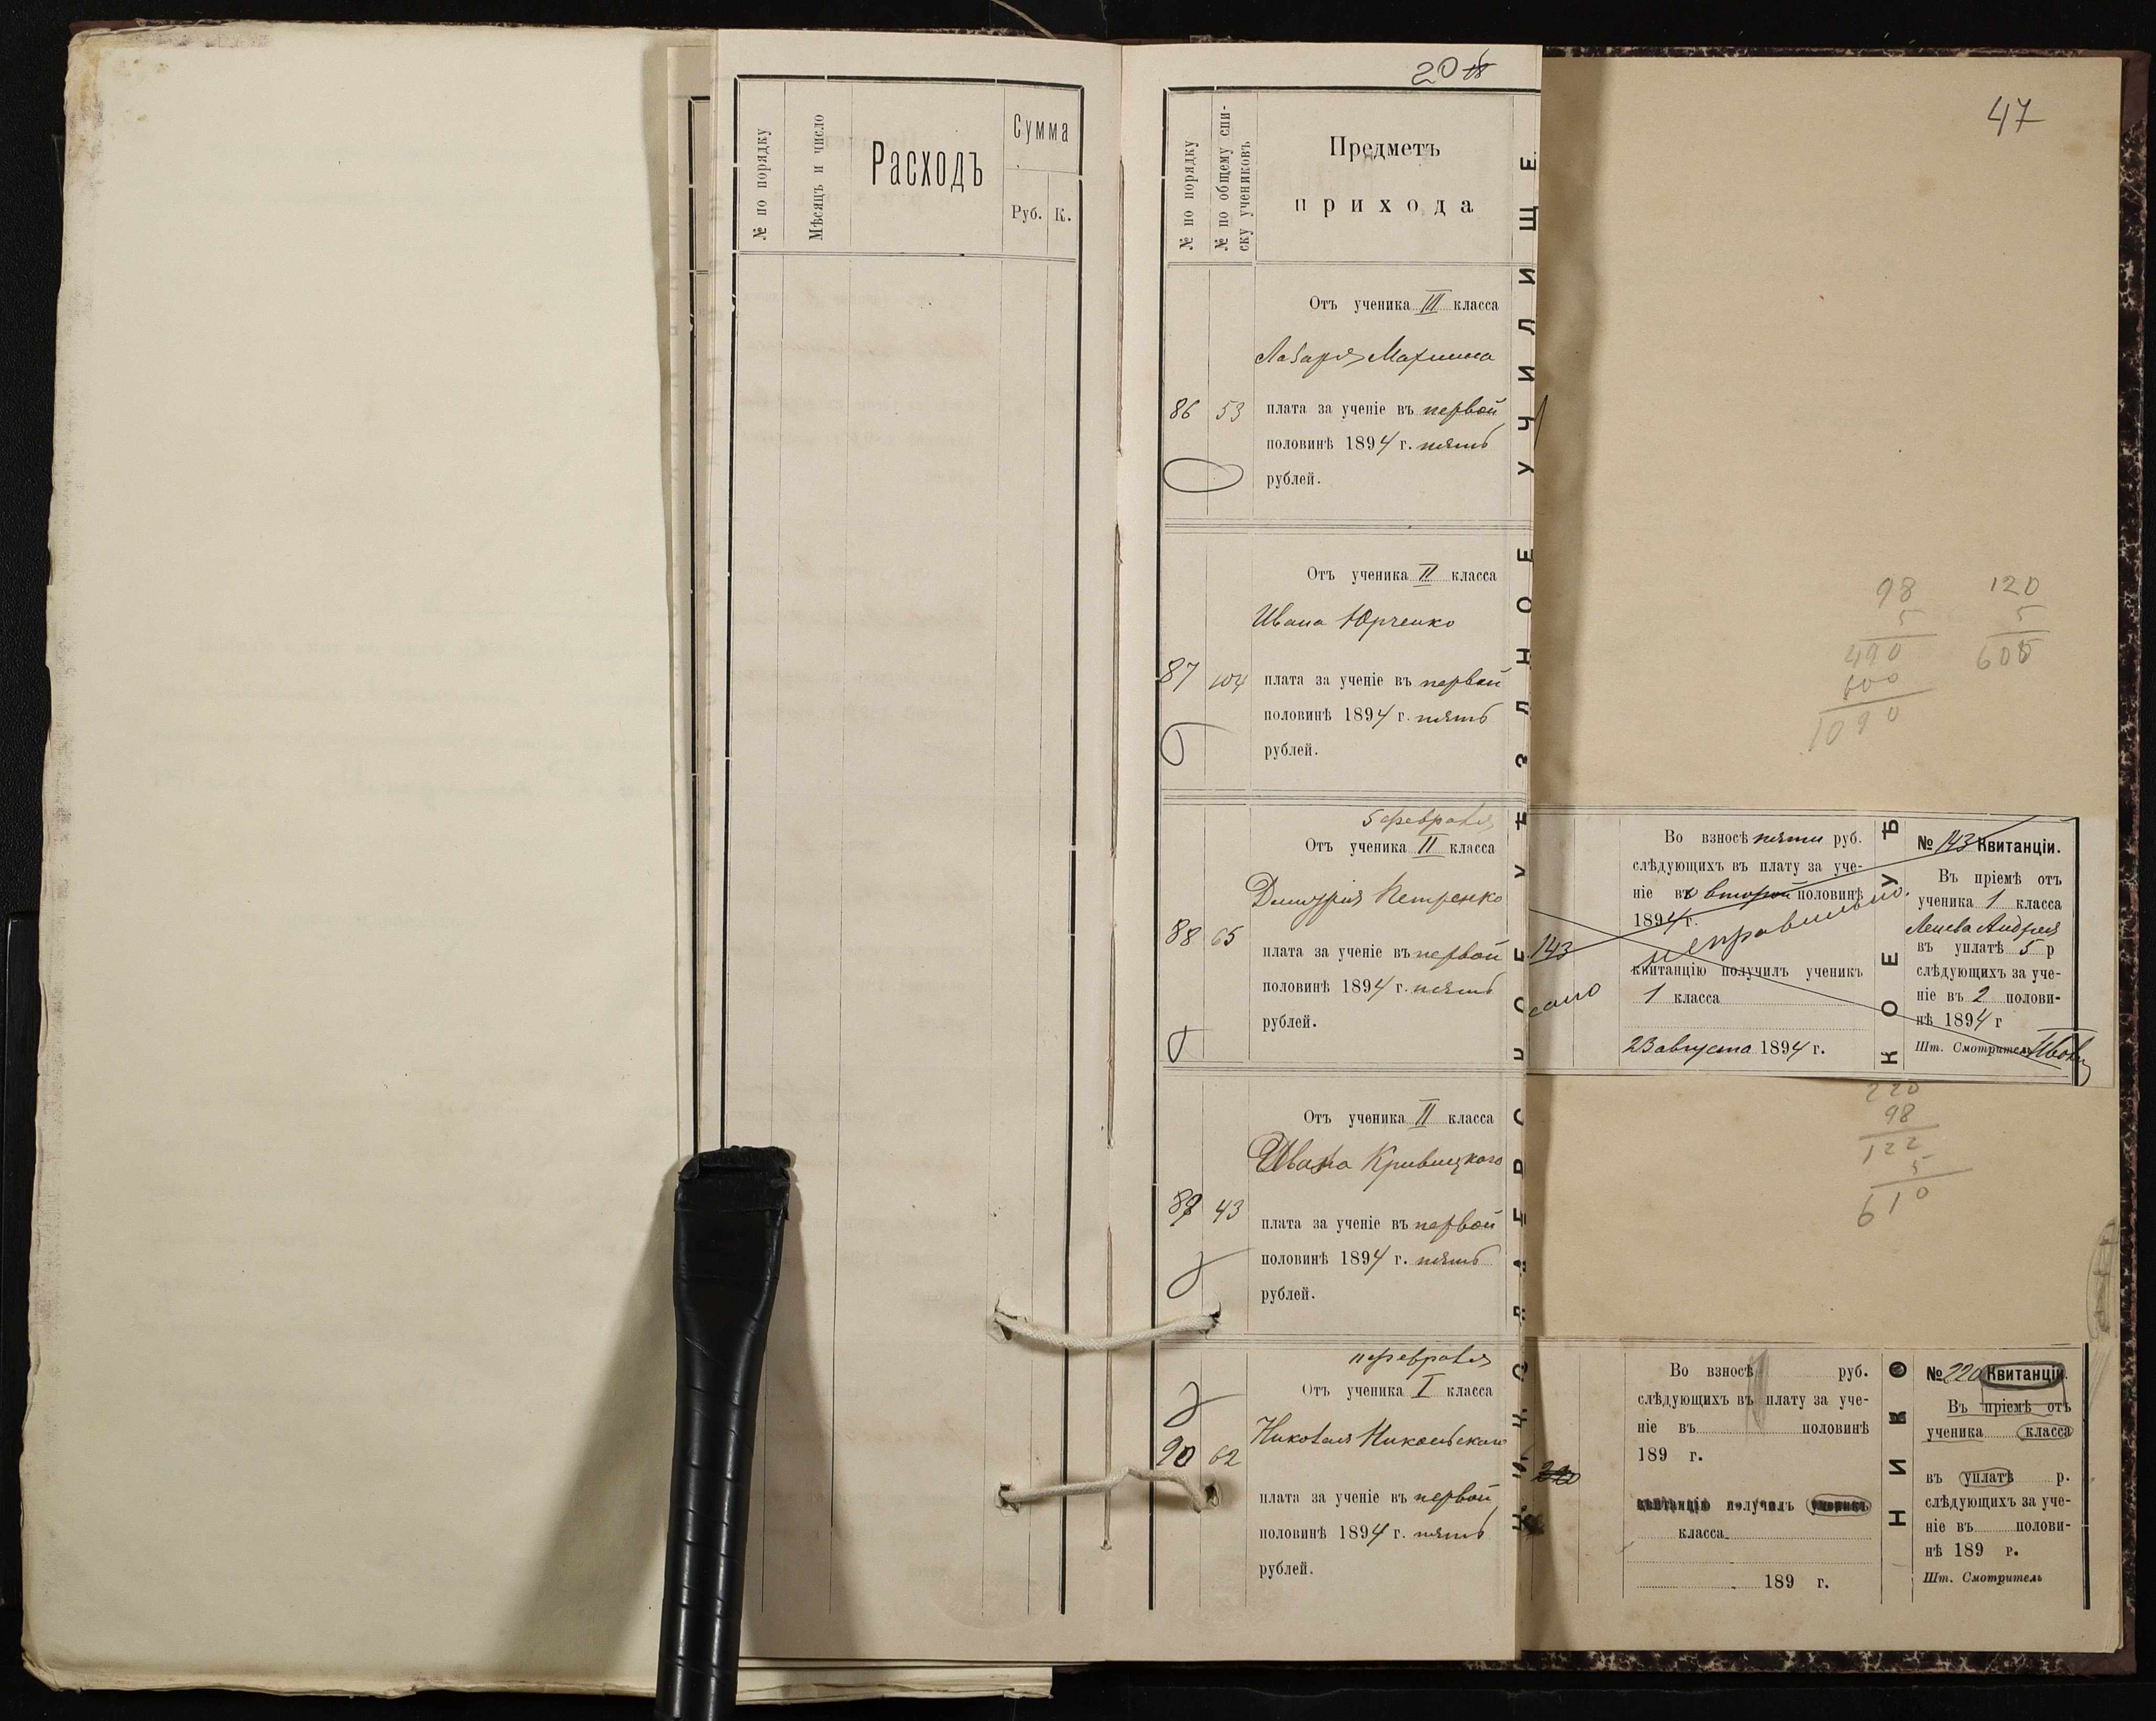 № по порядку
Мѣсяцъ и число
Расходъ
Сумма
Руб. К.
20 18
№ по порядку
№ по общему спи-
ску учениковъ
Предметъ
прихода
Отъ ученика III класса
Лазаря Махлина
86 53 плата за ученіе въ первой
половинѣ 1894 г. пять
рублей.
Отъ ученика II класса
Ивана Юрченко
87 104 плата за ученіе въ первой
половинѣ 1894 г. пять
рублей.
5 февраля
Отъ ученика II класса
Дмитрія Петренко
88 65 плата за ученіе въ первой
половинѣ 1894 г. пять
рублей.
Отъ ученика II класса
Ивана Кривицкого
89 43 плата за ученіе въ первой
половинѣ 1894 г. пять
рублей.
11 февраля
Отъ ученика I класса
Николая Никольскаго
90 62 плата за ученіе въ первой
половинѣ 1894 г. пять
рублей.
УЧИЛИЩЕ.
47
98
5
490
600
1090
120
5
600
143
Во взносѣ пяти руб.
слѣдующихъ въ плату за уче-
ніе во второй половинѣ
1894 г.
неправильно.
квитанцію получилъ ученикъ
1 класса
23 августа 1894 г.
КОЕ УѢ
№ 143 Квитанціи.
Въ пріемѣ отъ
ученика 1 класса
Андрея
въ уплатѣ 5 р
слѣдующихъ за уче-
ніе въ 2 полови-
нѣ 1894 г
Шт. Смотритель
220
98
122
5
610
220
Во взносѣ руб.
слѣдующихъ въ плату за уче-
ніе въ половинѣ
189 г.
квитанцію получилъ ученикъ
класса
189 г.
НИКО
№ 220 Квитанціи.
Въ пріемѣ отъ
ученика класса
въ уплатѣ р.
слѣдующихъ за уче-
ніе въ полови-
нѣ 189 г.
Шт. Смотритель